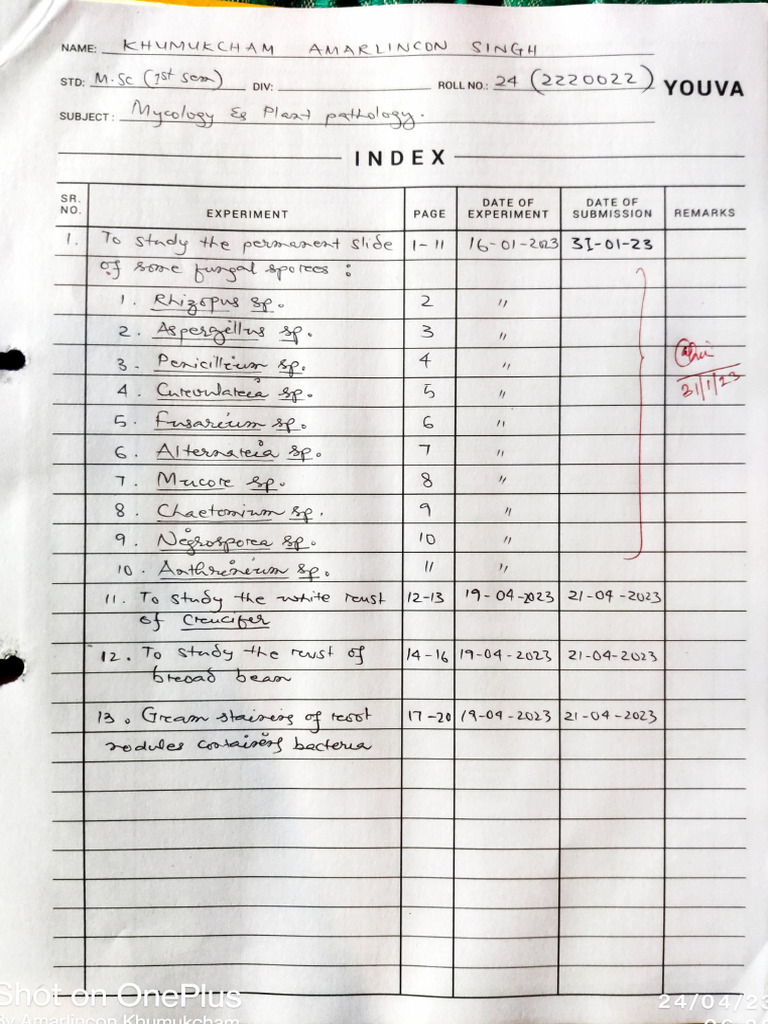 NAME: KHUMUKCHAM AMARLINCON SINGH
STD: M.Sc (1st sem) DIV: ROLL NO.: 24 (2220022) YOUVA
SUBJECT: Mycology & Plant pathology.
INDEX
SR. NO. EXPERIMENT PAGE DATE OF EXPERIMENT DATE OF SUBMISSION REMARKS
1. To study the permanent slide 1-11 16-01-2023 31-01-23
of some fungal spores :
1. Rhizopus sp. 2 "
2. Aspergillus sp. 3 "
3. Penicillium sp. 4 "
31/1/23
4. Curvularia sp. 5 "
5. Fusarium sp. 6 "
6. Alternaria sp. 7 "
7. Mucor sp. 8 "
8. Chaetomium sp. 9 "
9. Nigrospora sp. 10 "
10. Arthrinium sp. 11 "
11. To study the white rust 12-13 19-04-2023 21-04-2023
of Crucifer
12. To study the rust of 14-16 19-04-2023 21-04-2023
broad bean
13. Gram staining of root 17-20 19-04-2023 21-04-2023
nodules containing bacteria
Shot on OnePlus
By Amarlincon Khumukcham
24/04/23